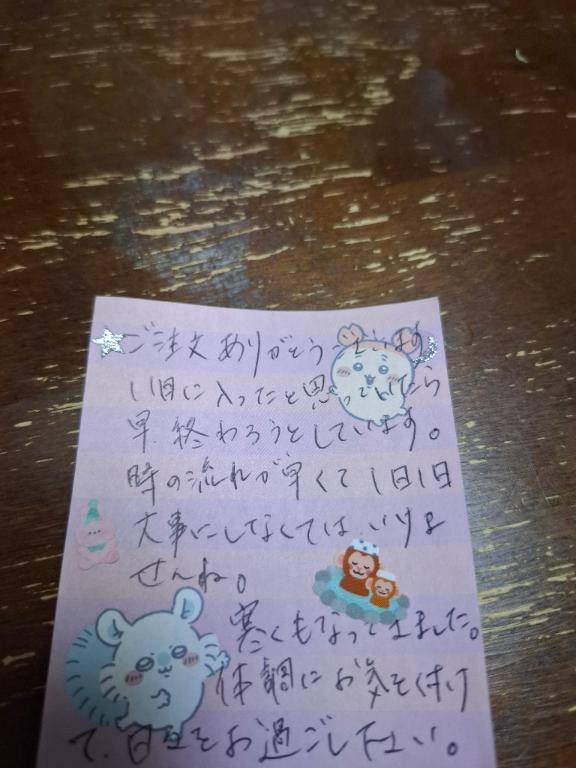 ご注文ありがとうございます
11月に入ったと思っていたら
早、終わろうとしています。
時の流れが早くて1日1日
大事にしなくては、いけま
せんね。
寒くもなってきました。
体調にお気を付け
て、日々をお過ごし下さい。